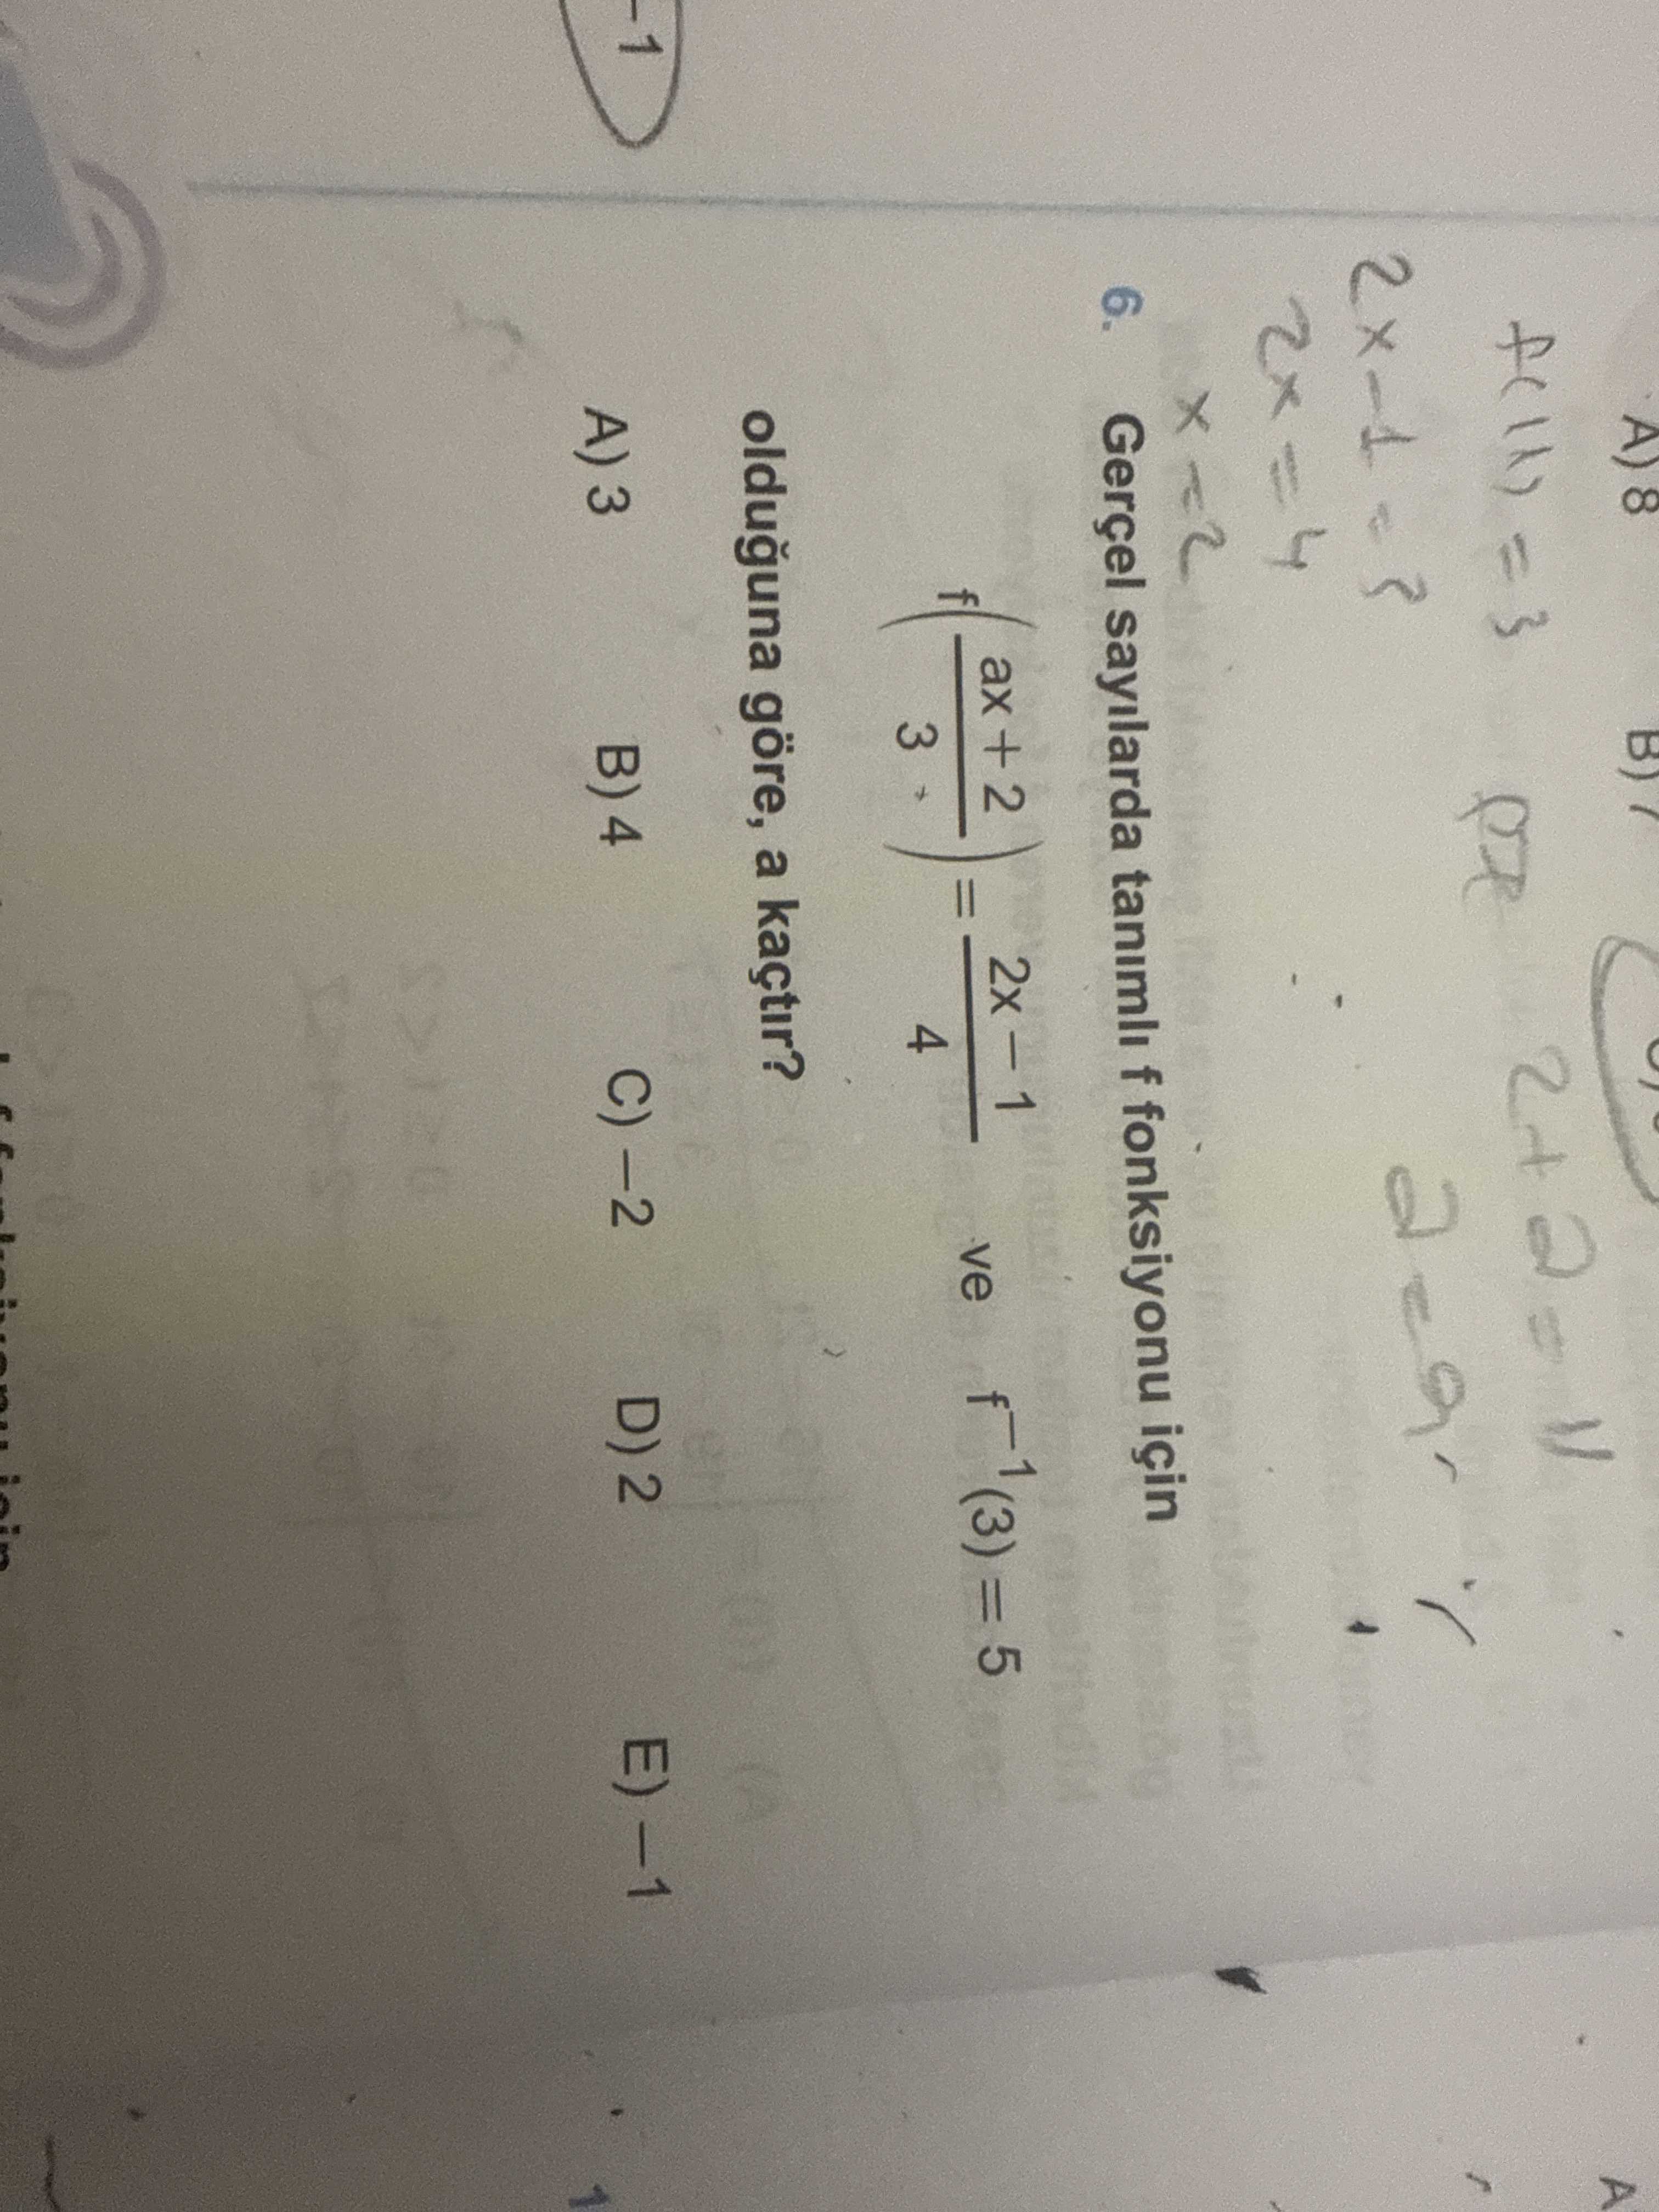 A) 8 B) 7
f(11) = 3
2x - 1 = 3
2x = 4
x = 2
2 + a = 11
a = 9
6. Gerçel sayılarda tanımlı f fonksiyonu için
f((ax + 2)/3) = (2x - 1)/4 ve f⁻¹(3) = 5
olduğuna göre, a kaçtır?
A) 3 B) 4 C) -2 D) 2 E) -1
-1
1
A